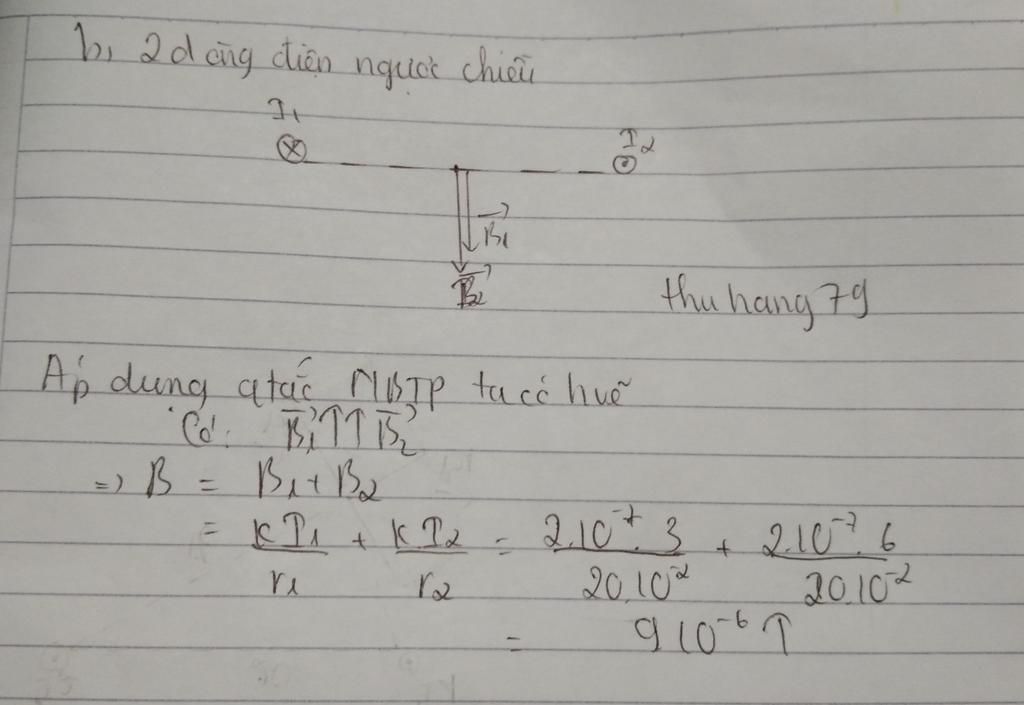 b, 2 dòng điện ngược chiều
I₁
I₂
B₁
B₂
thuhang79
Áp dụng qtắc NBTP ta có hvẽ
Có: B₁ ↑↑ B₂
=> B = B₁ + B₂
= kI₁/r₁ + kI₂/r₂ = 2.10⁻⁷.3/20.10⁻² + 2.10⁻⁷.6/20.10⁻²
= 9 10⁻⁶ T